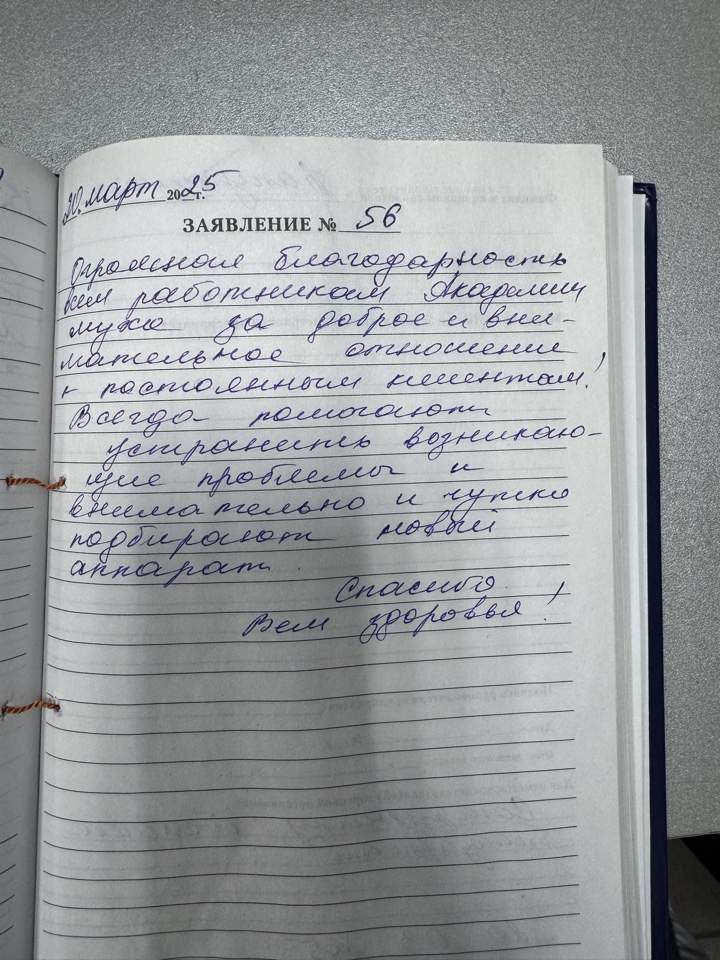 20. март 2025 г.
ЗАЯВЛЕНИЕ № 56
Огромная благодарность
всем работникам Академии
слуха за доброе и вни-
мательное отношение
к постоянным клиентам!
Всегда помогают
устранить возникаю-
щие проблемы и
внимательно и чутко
подбирают новый
аппарат.
Спасибо.
Всем здоровья!